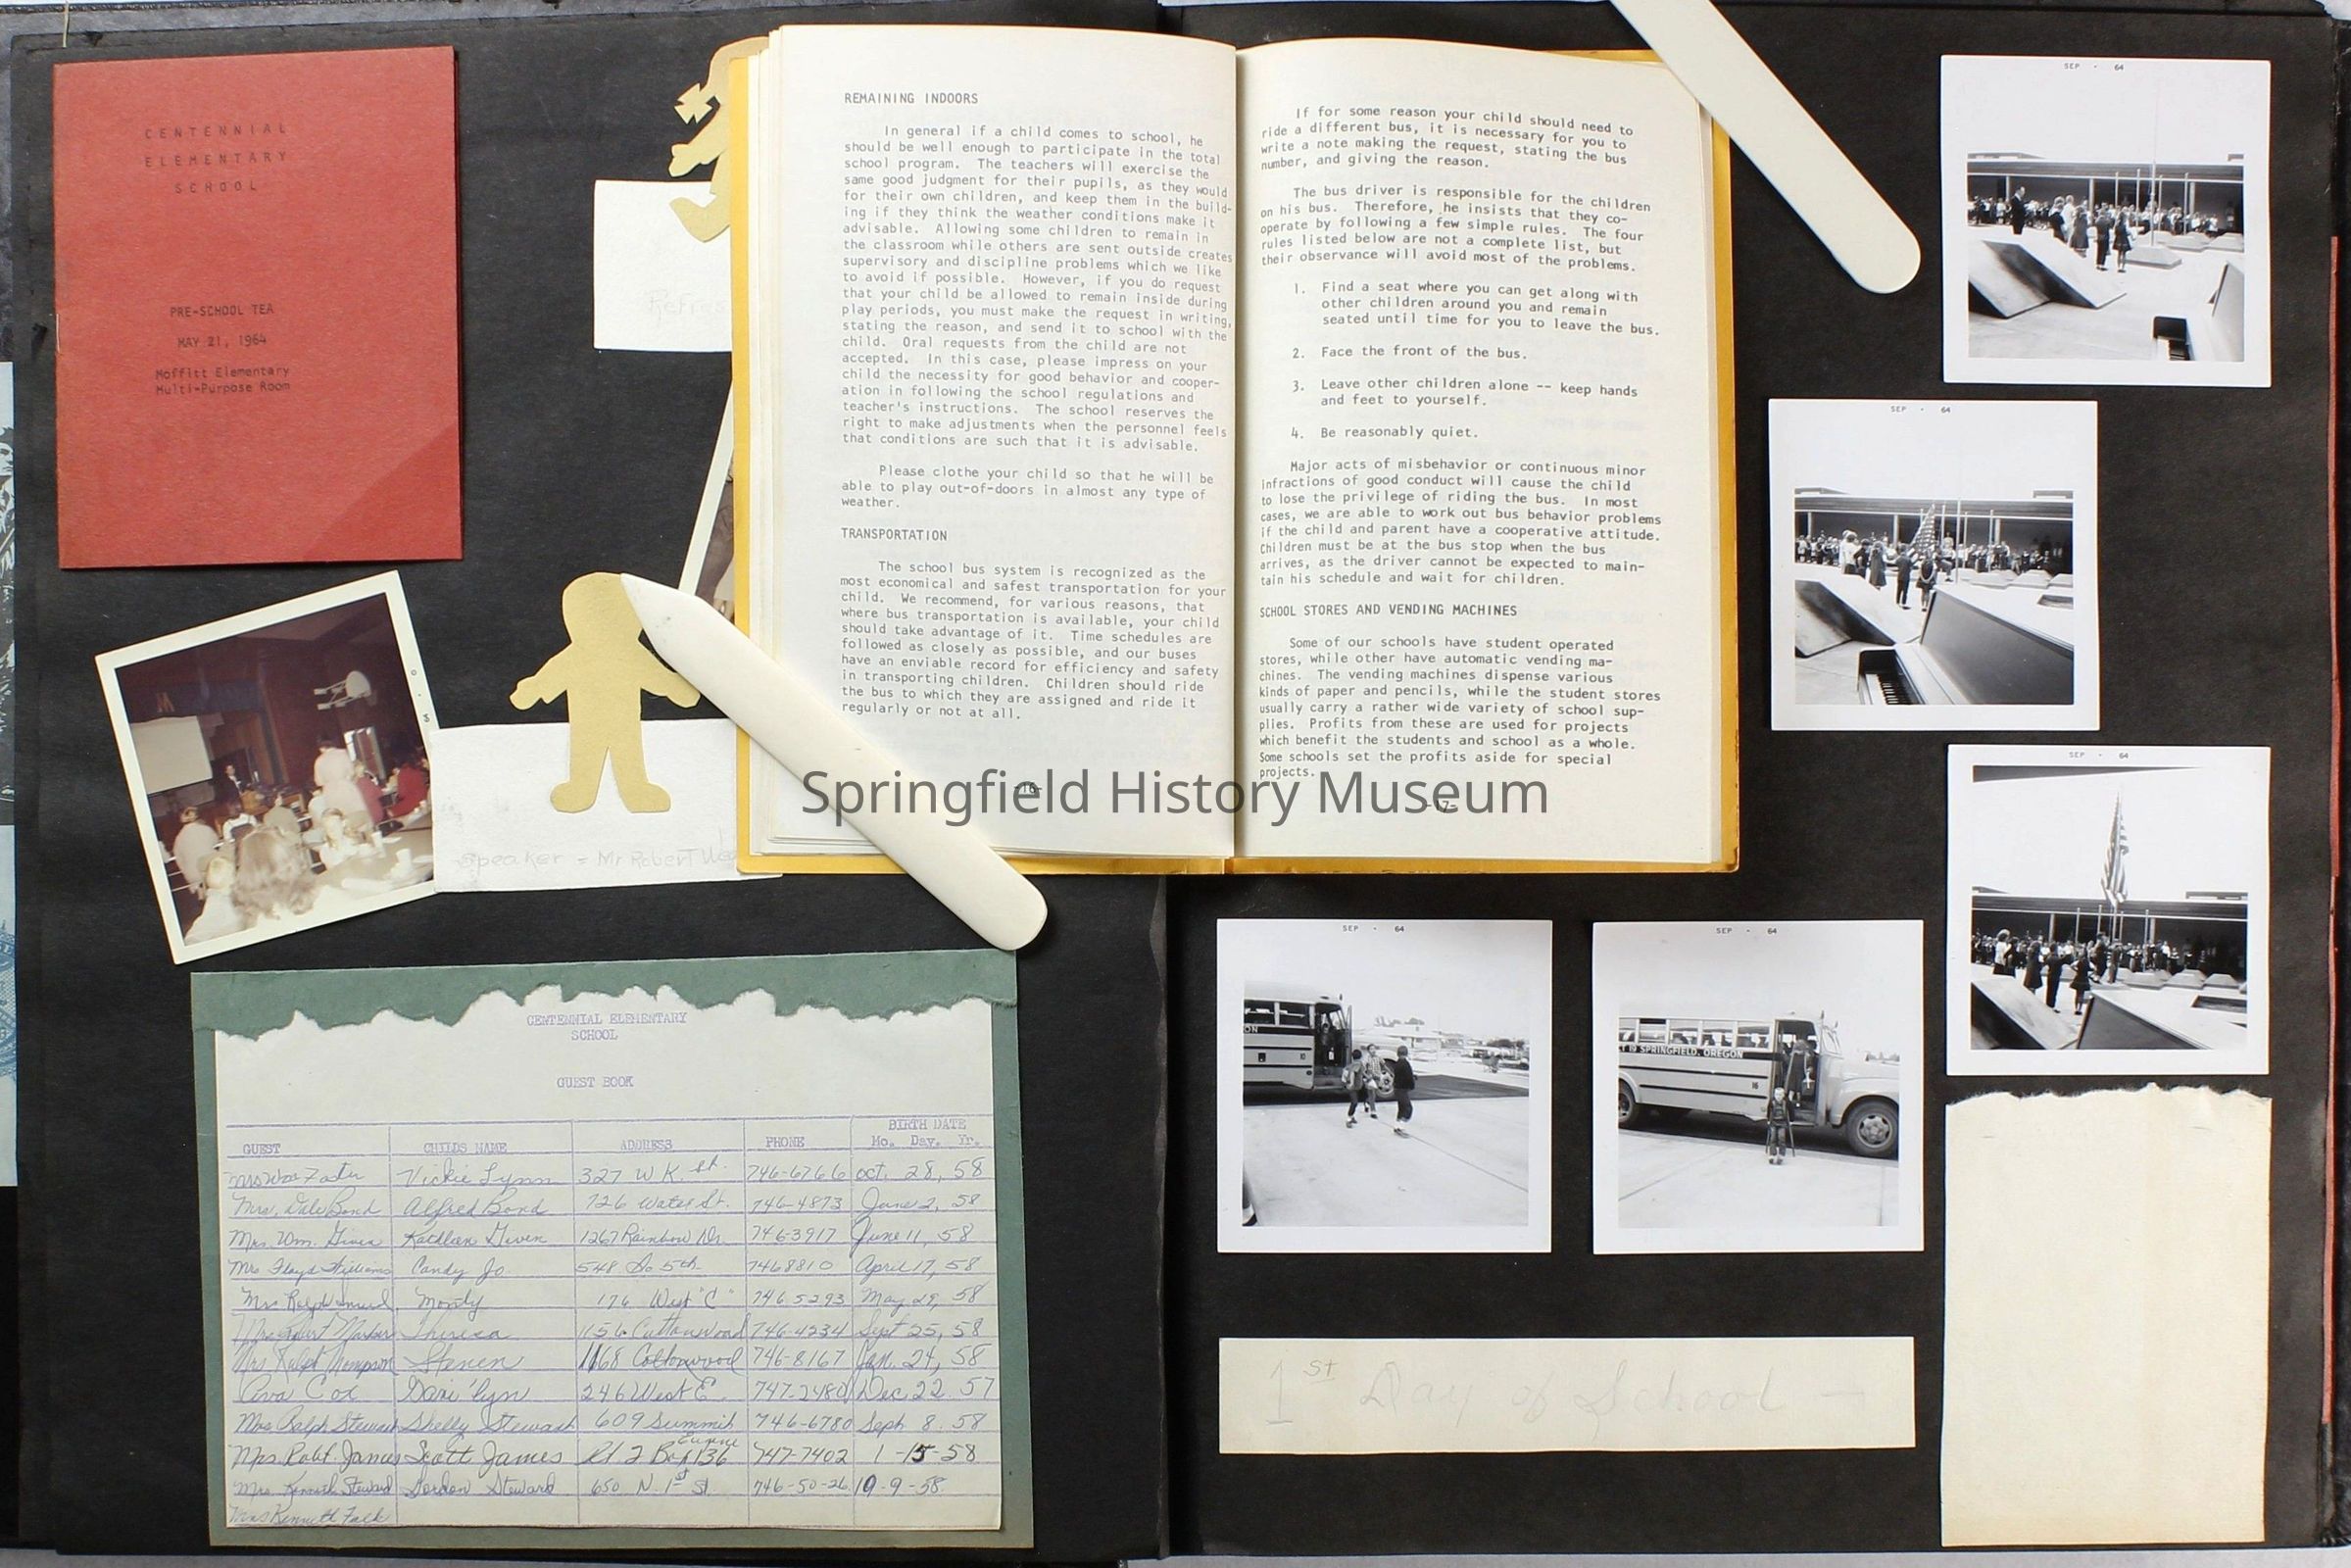 CENTENNIAL
ELEMENTARY
SCHOOL
PRE-SCHOOL TEA
MAY 21, 1964
Moffitt Elementary
Multi-Purpose Room
Refres
Speaker = Mr Robert
REMAINING INDOORS
In general if a child comes to school, he
should be well enough to participate in the total
school program. The teachers will exercise the
same good judgment for their pupils, as they would
for their own children, and keep them in the build-
ing if they think the weather conditions make it
advisable. Allowing some children to remain in
the classroom while others are sent outside creates
supervisory and discipline problems which we like
to avoid if possible. However, if you do request
that your child be allowed to remain inside during
play periods, you must make the request in writing,
stating the reason, and send it to school with the
child. Oral requests from the child are not
accepted. In this case, please impress on your
child the necessity for good behavior and cooper-
ation in following the school regulations and
teacher's instructions. The school reserves the
right to make adjustments when the personnel feels
that conditions are such that it is advisable.
Please clothe your child so that he will be
able to play out-of-doors in almost any type of
weather.
TRANSPORTATION
The school bus system is recognized as the
most economical and safest transportation for your
child. We recommend, for various reasons, that
where bus transportation is available, your child
should take advantage of it. Time schedules are
followed as closely as possible, and our buses
have an enviable record for efficiency and safety
in transporting children. Children should ride
the bus to which they are assigned and ride it
regularly or not at all.
-16-
If for some reason your child should need to
ride a different bus, it is necessary for you to
write a note making the request, stating the bus
number, and giving the reason.
The bus driver is responsible for the children
on his bus. Therefore, he insists that they co-
operate by following a few simple rules. The four
rules listed below are not a complete list, but
their observance will avoid most of the problems.
1. Find a seat where you can get along with
other children around you and remain
seated until time for you to leave the bus.
2. Face the front of the bus.
3. Leave other children alone -- keep hands
and feet to yourself.
4. Be reasonably quiet.
Major acts of misbehavior or continuous minor
infractions of good conduct will cause the child
to lose the privilege of riding the bus. In most
cases, we are able to work out bus behavior problems
if the child and parent have a cooperative attitude.
Children must be at the bus stop when the bus
arrives, as the driver cannot be expected to main-
tain his schedule and wait for children.
SCHOOL STORES AND VENDING MACHINES
Some of our schools have student operated
stores, while other have automatic vending ma-
chines. The vending machines dispense various
kinds of paper and pencils, while the student stores
usually carry a rather wide variety of school sup-
plies. Profits from these are used for projects
which benefit the students and school as a whole.
Some schools set the profits aside for special
projects.
-17-
Springfield History Museum
SEP · 64
SEP · 64
SEP · 64
SEP · 64
SEP · 64
ON
10
T 19 SPRINGFIELD, OREGON
16
1st Day of School →
CENTENNIAL ELEMENTARY
SCHOOL
GUEST BOOK
GUEST CHILDS NAME ADDRESS PHONE BIRTH DATE
Mo. Day. Yr.
Vickie Lynn 327 W K. St. 746-6766 oct. 28, 58
Mrs. Dale Bond Alfred Bond 726 Water St. 746-4873 June 2, 58
Mrs. Wm. Given Kathleen Given 1267 Rainbow Dr. 746-3917 June 11, 58
Mrs Floyd Williams Candy Jo 548 So 5th 746 8810 April 17, 58
Mrs Ralph Monty 176 West "C" 746 5293 May 29, 58
Mrs Robert Theresa 1156 Cottonwood 746-4234 Sept 25, 58
Mrs Ralph Thompson Steven 1168 Cottonwood 746-8167 Jan. 24, 58
Ava Cox Geri 'lyn 246 West E. 747-2480 Dec 22. 57
Mrs Ralph Stewart Shelly Stewart 609 Summit 746-6780 Sept 8. 58
Mrs. Robt. James Scott James Rt. 2 Box 136 Eugene 747-7402 1-15-58
Mrs. Kenneth Steward Gordon Steward 650 N. 1st St. 746-50-26 10-9-58
Mrs Kenneth Falk